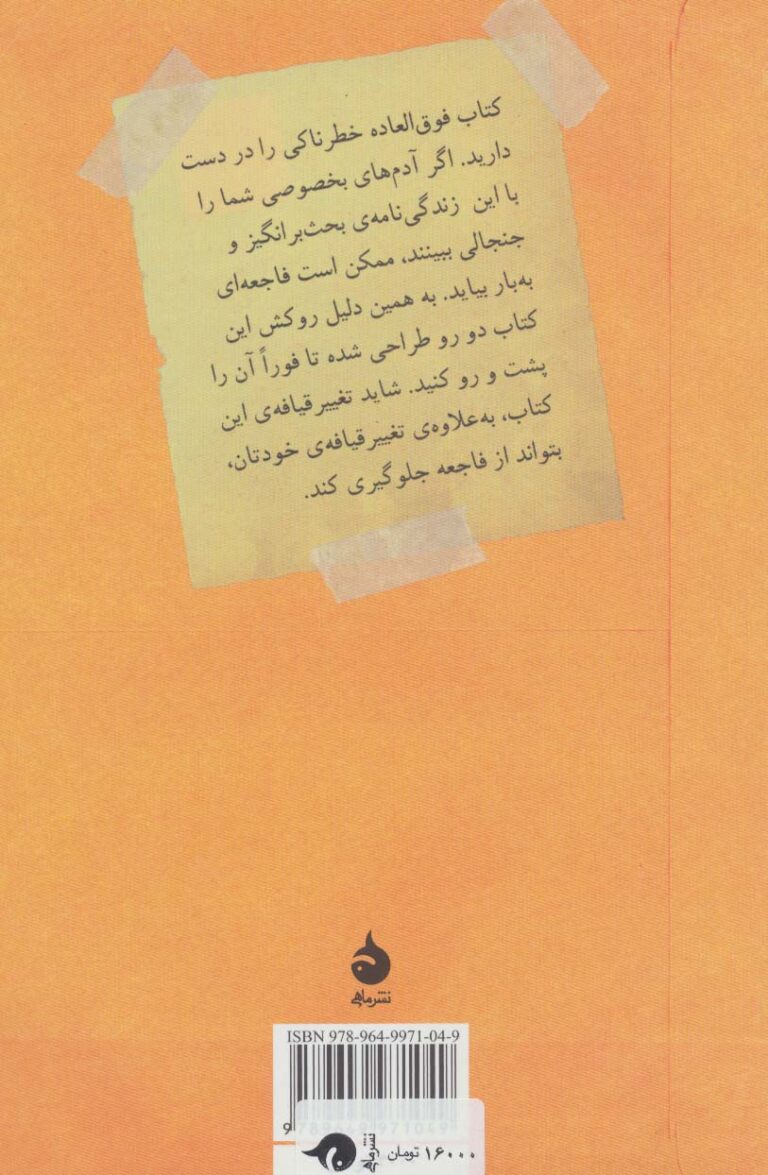 کتاب فوق‌العاده خطرناکی را در دست
دارید. اگر آدم‌های بخصوصی شما را
با این زندگی‌نامه‌ی بحث‌برانگیز و
جنجالی ببینند، ممکن است فاجعه‌ای
به‌بار بیاید. به همین دلیل روکش این
کتاب دو رو طراحی شده تا فوراً آن را
پشت و رو کنید. شاید تغییرقیافه‌ی این
کتاب، به‌علاوه‌ی تغییرقیافه‌ی خودتان،
بتواند از فاجعه جلوگیری کند.
نشر ماهی
ISBN 978-964-9971-04-9
9 789649 971049
نشر ماهی
۱۶۰۰۰ تومان